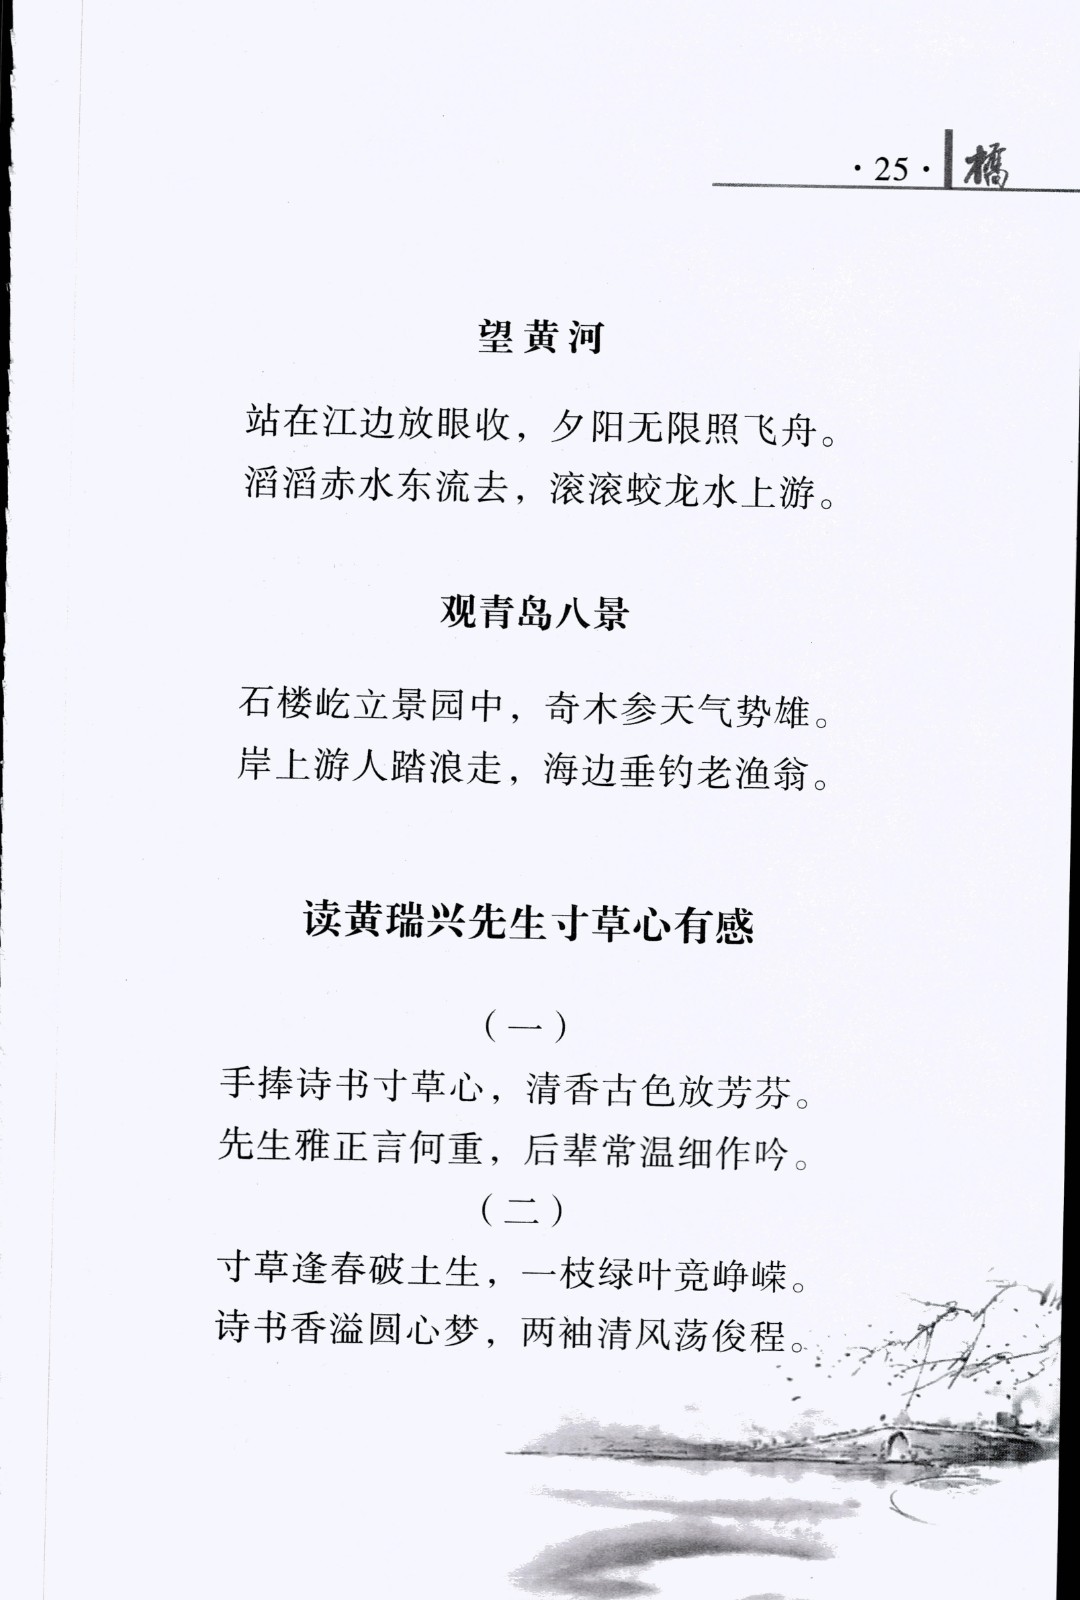 ·25· 橋
望黄河
站在江边放眼收，夕阳无限照飞舟。
滔滔赤水东流去，滚滚蛟龙水上游。
观青岛八景
石楼屹立景园中，奇木参天气势雄。
岸上游人踏浪走，海边垂钓老渔翁。
读黄瑞兴先生寸草心有感
（一）
手捧诗书寸草心，清香古色放芳芬。
先生雅正言何重，后辈常温细作吟。
（二）
寸草逢春破土生，一枝绿叶竞峥嵘。
诗书香溢圆心梦，两袖清风荡俊程。